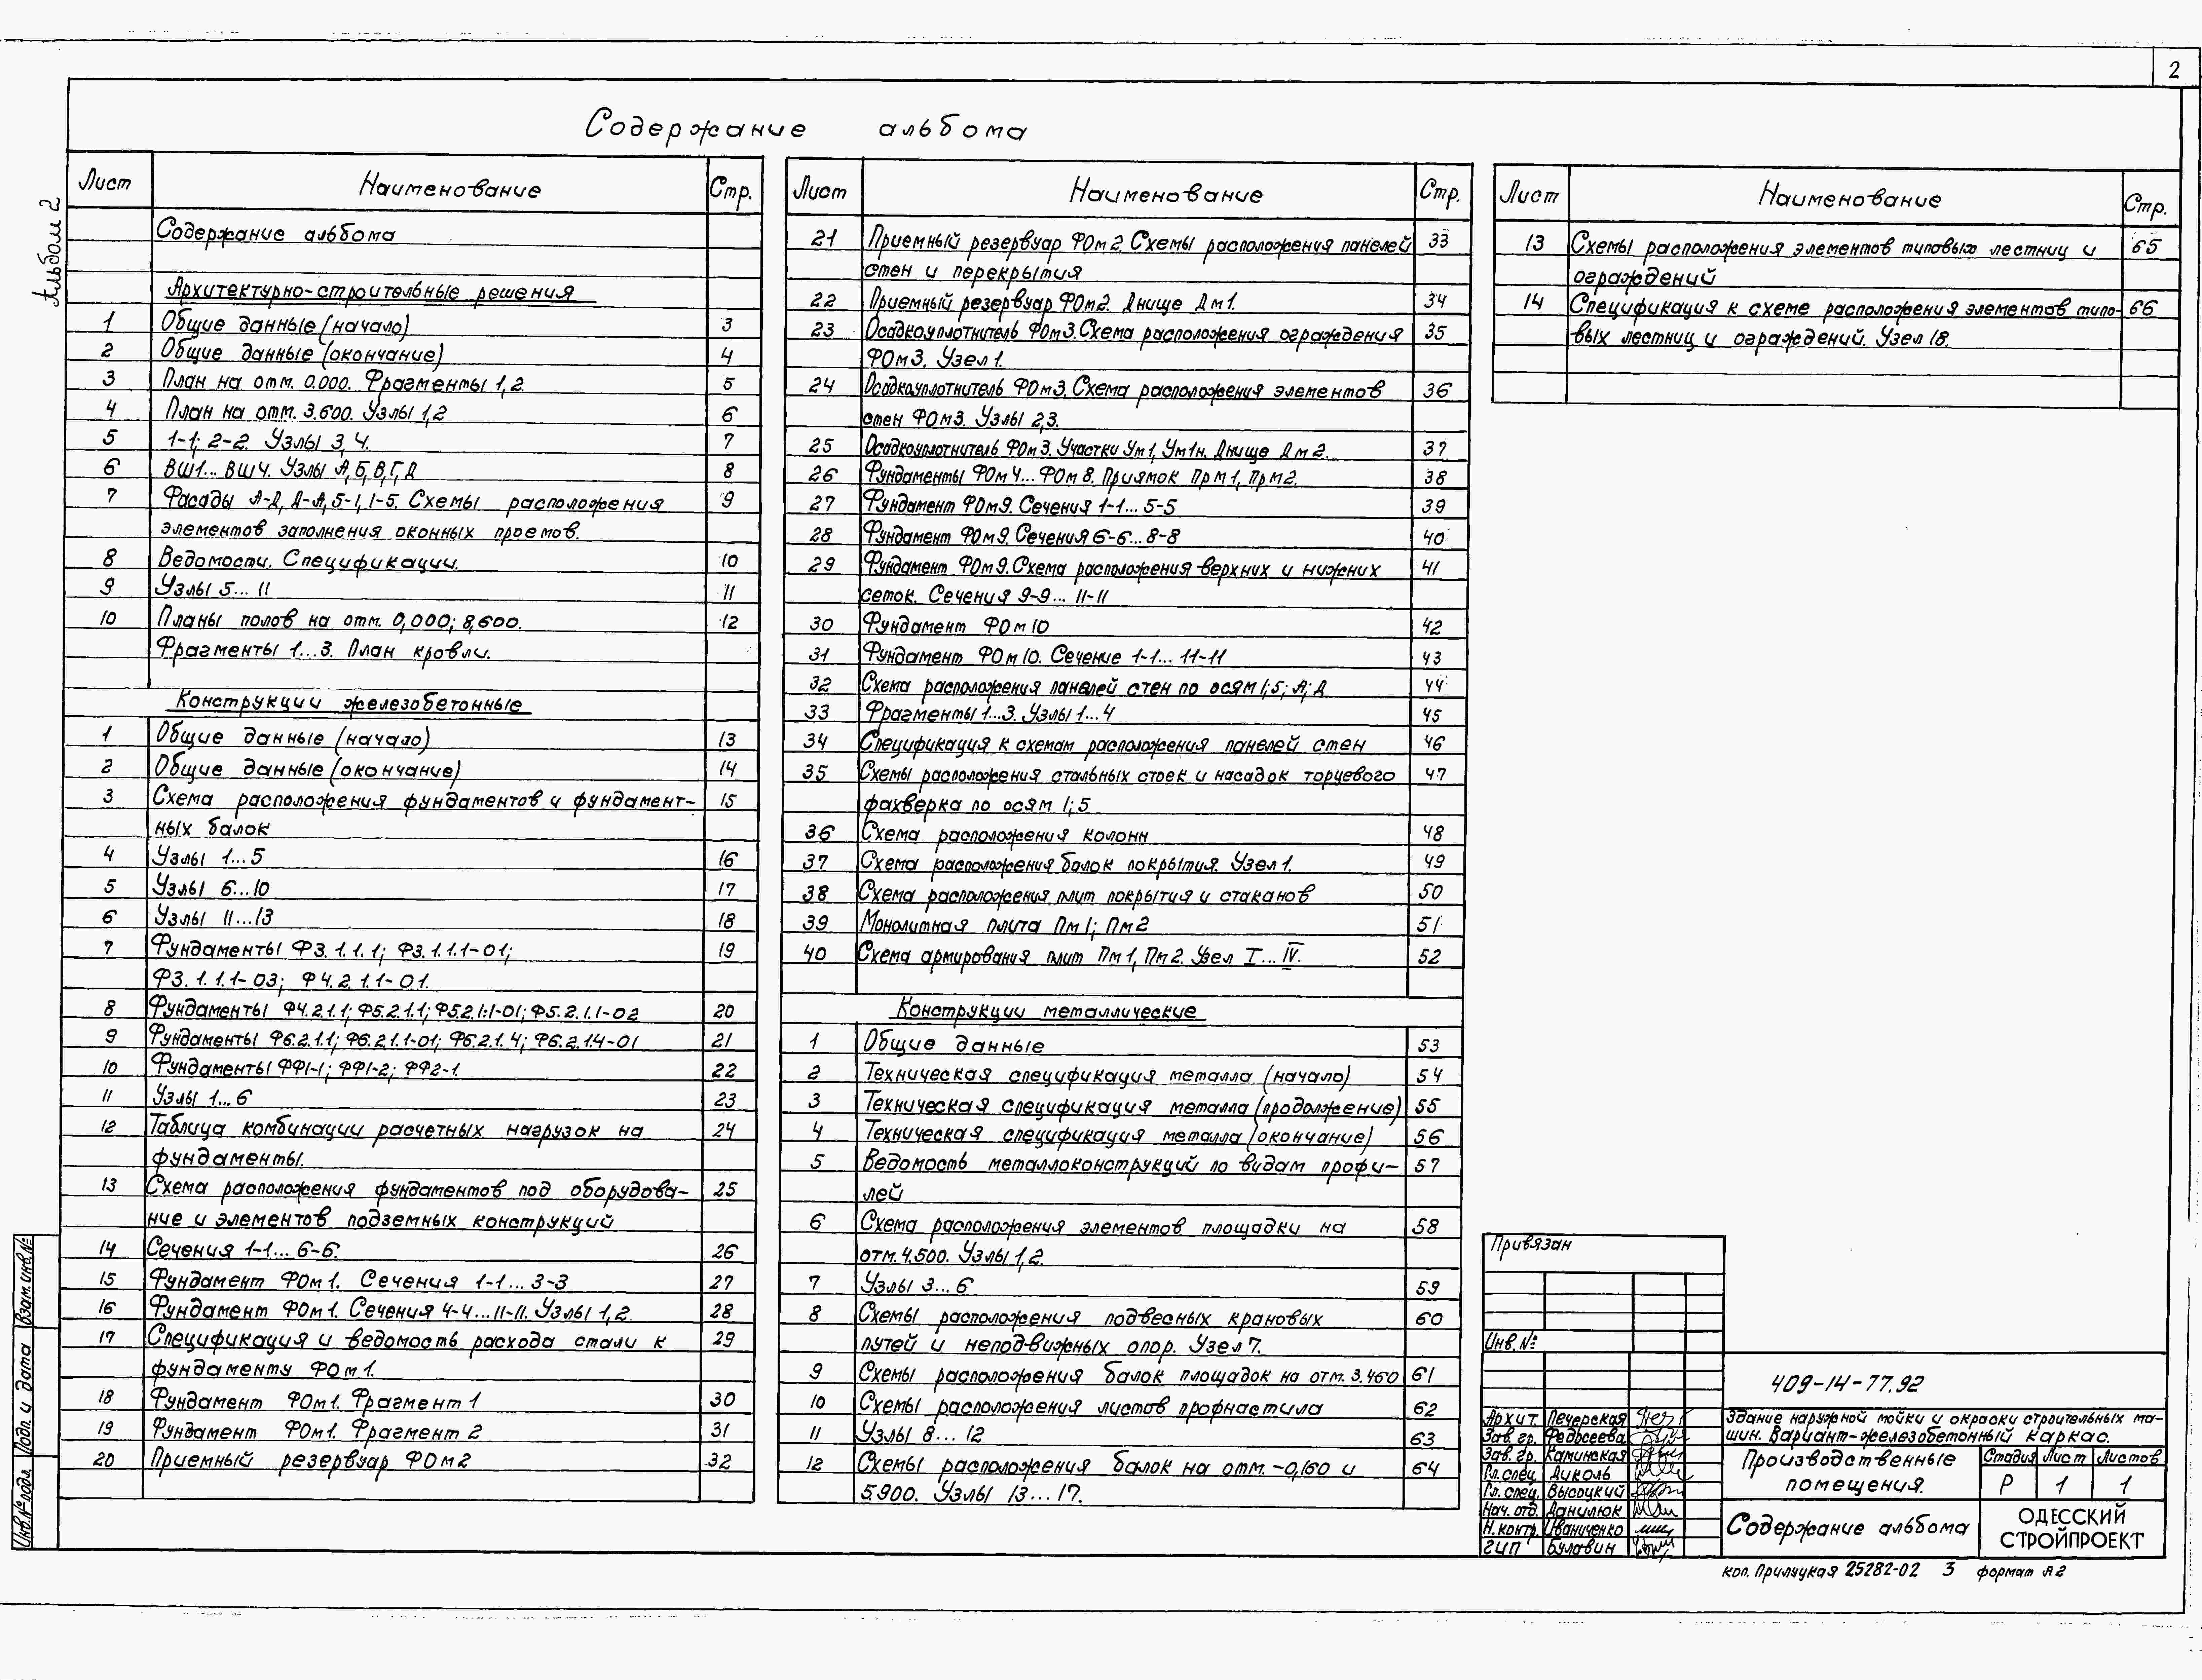 2
Содержание альбома
Альбом 2
Лист Наименование Стр.
Содержание альбома
Архитектурно-строительные решения
1 Общие данные (начало) 3
2 Общие данные (окончание) 4
3 План на отм. 0.000. Фрагменты 1,2. 5
4 План на отм. 3.600. Узлы 1,2 6
5 1-1; 2-2. Узлы 3,4. 7
6 ВШ1... ВШ4. Узлы А,Б,В,Г,Д 8
7 Фасады А-Д, Д-А, 5-1, 1-5. Схемы расположения 9
элементов заполнения оконных проемов.
8 Ведомости. Спецификации. 10
9 Узлы 5... 11 11
10 Планы полов на отм. 0,000; 8,600. 12
Фрагменты 1...3. План кровли.
Конструкции железобетонные
1 Общие данные (начало) 13
2 Общие данные (окончание) 14
3 Схема расположения фундаментов и фундамент- 15
ных балок
4 Узлы 1...5 16
5 Узлы 6...10 17
6 Узлы 11...13 18
7 Фундаменты Ф3.1.1.1; Ф3.1.1.1-01; 19
Ф3.1.1.1-03; Ф4.2.1.1-01.
8 Фундаменты Ф4.2.1.1; Ф5.2.1.1; Ф5.2.1.1-01; Ф5.2.1.1-02 20
9 Фундаменты Ф6.2.1.1; Ф6.2.1.1-01; Ф6.2.1.4; Ф6.2.1.4-01 21
10 Фундаменты ФФ1-1; ФФ1-2; ФФ2-1. 22
11 Узлы 1...6 23
12 Таблица комбинации расчетных нагрузок на 24
фундаменты.
13 Схема расположения фундаментов под оборудова- 25
ние и элементов подземных конструкций
14 Сечения 1-1... 6-6. 26
15 Фундамент ФОм1. Сечения 1-1... 3-3 27
16 Фундамент ФОм1. Сечения 4-4...11-11. Узлы 1,2 28
17 Спецификация и ведомость расхода стали к 29
фундаменту ФОм1.
18 Фундамент ФОм1. Фрагмент 1 30
19 Фундамент ФОм1. Фрагмент 2 31
20 Приемный резервуар ФОм2 32
Лист Наименование Стр.
21 Приемный резервуар ФОм2. Схемы расположения панелей 33
стен и перекрытия
22 Приемный резервуар ФОм2. Днище Дм1. 34
23 Осадкоуплотнитель ФОм3. Схема расположения ограждения 35
ФОм3. Узел 1.
24 Осадкоуплотнитель ФОм3. Схема расположения элементов 36
стен ФОм3. Узлы 2,3.
25 Осадкоуплотнитель ФОм3. Участки Ум1, Ум1н. Днище Дм2. 37
26 Фундаменты ФОм4... ФОм8. Приямок Прм1, Прм2. 38
27 Фундамент ФОм9. Сечения 1-1... 5-5 39
28 Фундамент ФОм9. Сечения 6-6... 8-8 40
29 Фундамент ФОм9. Схема расположения верхних и нижних 41
сеток. Сечения 9-9... 11-11
30 Фундамент ФОм10 42
31 Фундамент ФОм10. Сечение 1-1... 11-11 43
32 Схема расположения панелей стен по осям 1; 5; А; Д 44
33 Фрагменты 1...3. Узлы 1...4 45
34 Спецификация к схемам расположения панелей стен 46
35 Схемы расположения стальных стоек и насадок торцевого 47
фахверка по осям 1; 5
36 Схема расположения колонн 48
37 Схема расположения балок покрытия. Узел 1. 49
38 Схема расположения плит покрытия и стаканов 50
39 Монолитная плита Пм1; Пм2 51
40 Схема армирования плит Пм1, Пм2. Узел I... IV. 52
Конструкции металлические
1 Общие данные 53
2 Техническая спецификация металла (начало) 54
3 Техническая спецификация металла (продолжение) 55
4 Техническая спецификация металла (окончание) 56
5 Ведомость металлоконструкций по видам профи- 57
лей
6 Схема расположения элементов площадки на 58
отм. 4.500. Узлы 1,2.
7 Узлы 3...6 59
8 Схемы расположения подвесных крановых 60
путей и неподвижных опор. Узел 7.
9 Схемы расположения балок площадок на отм. 3.460 61
10 Схемы расположения листов профнастила 62
11 Узлы 8... 12 63
12 Схемы расположения балок на отм. -0,160 и 64
5.900. Узлы 13...17.
Лист Наименование Стр.
13 Схемы расположения элементов типовых лестниц и 65
ограждений
14 Спецификация к схеме расположения элементов типо- 66
вых лестниц и ограждений. Узел 18.
Привязан
Инв. №
409-14-77.92
Архит. Печерская
Зав. гр. Федосеева
Зав. гр. Каминская
Гл. спец. Диколь
Гл. спец. Высоцкий
Нач. отд. Данилюк
Н. контр. Иваниченко
ГИП Булавин
Здание наружной мойки и окраски строительных ма-
шин. Вариант-железобетонный каркас.
Производственные
помещения.
Стадия Лист Листов
Р 1 1
Содержание альбома
ОДЕССКИЙ
СТРОЙПРОЕКТ
коп. Прилуцкая 25282-02 3 формат А2
Взам. инв. №
Подп. и дата
Инв. № подл.